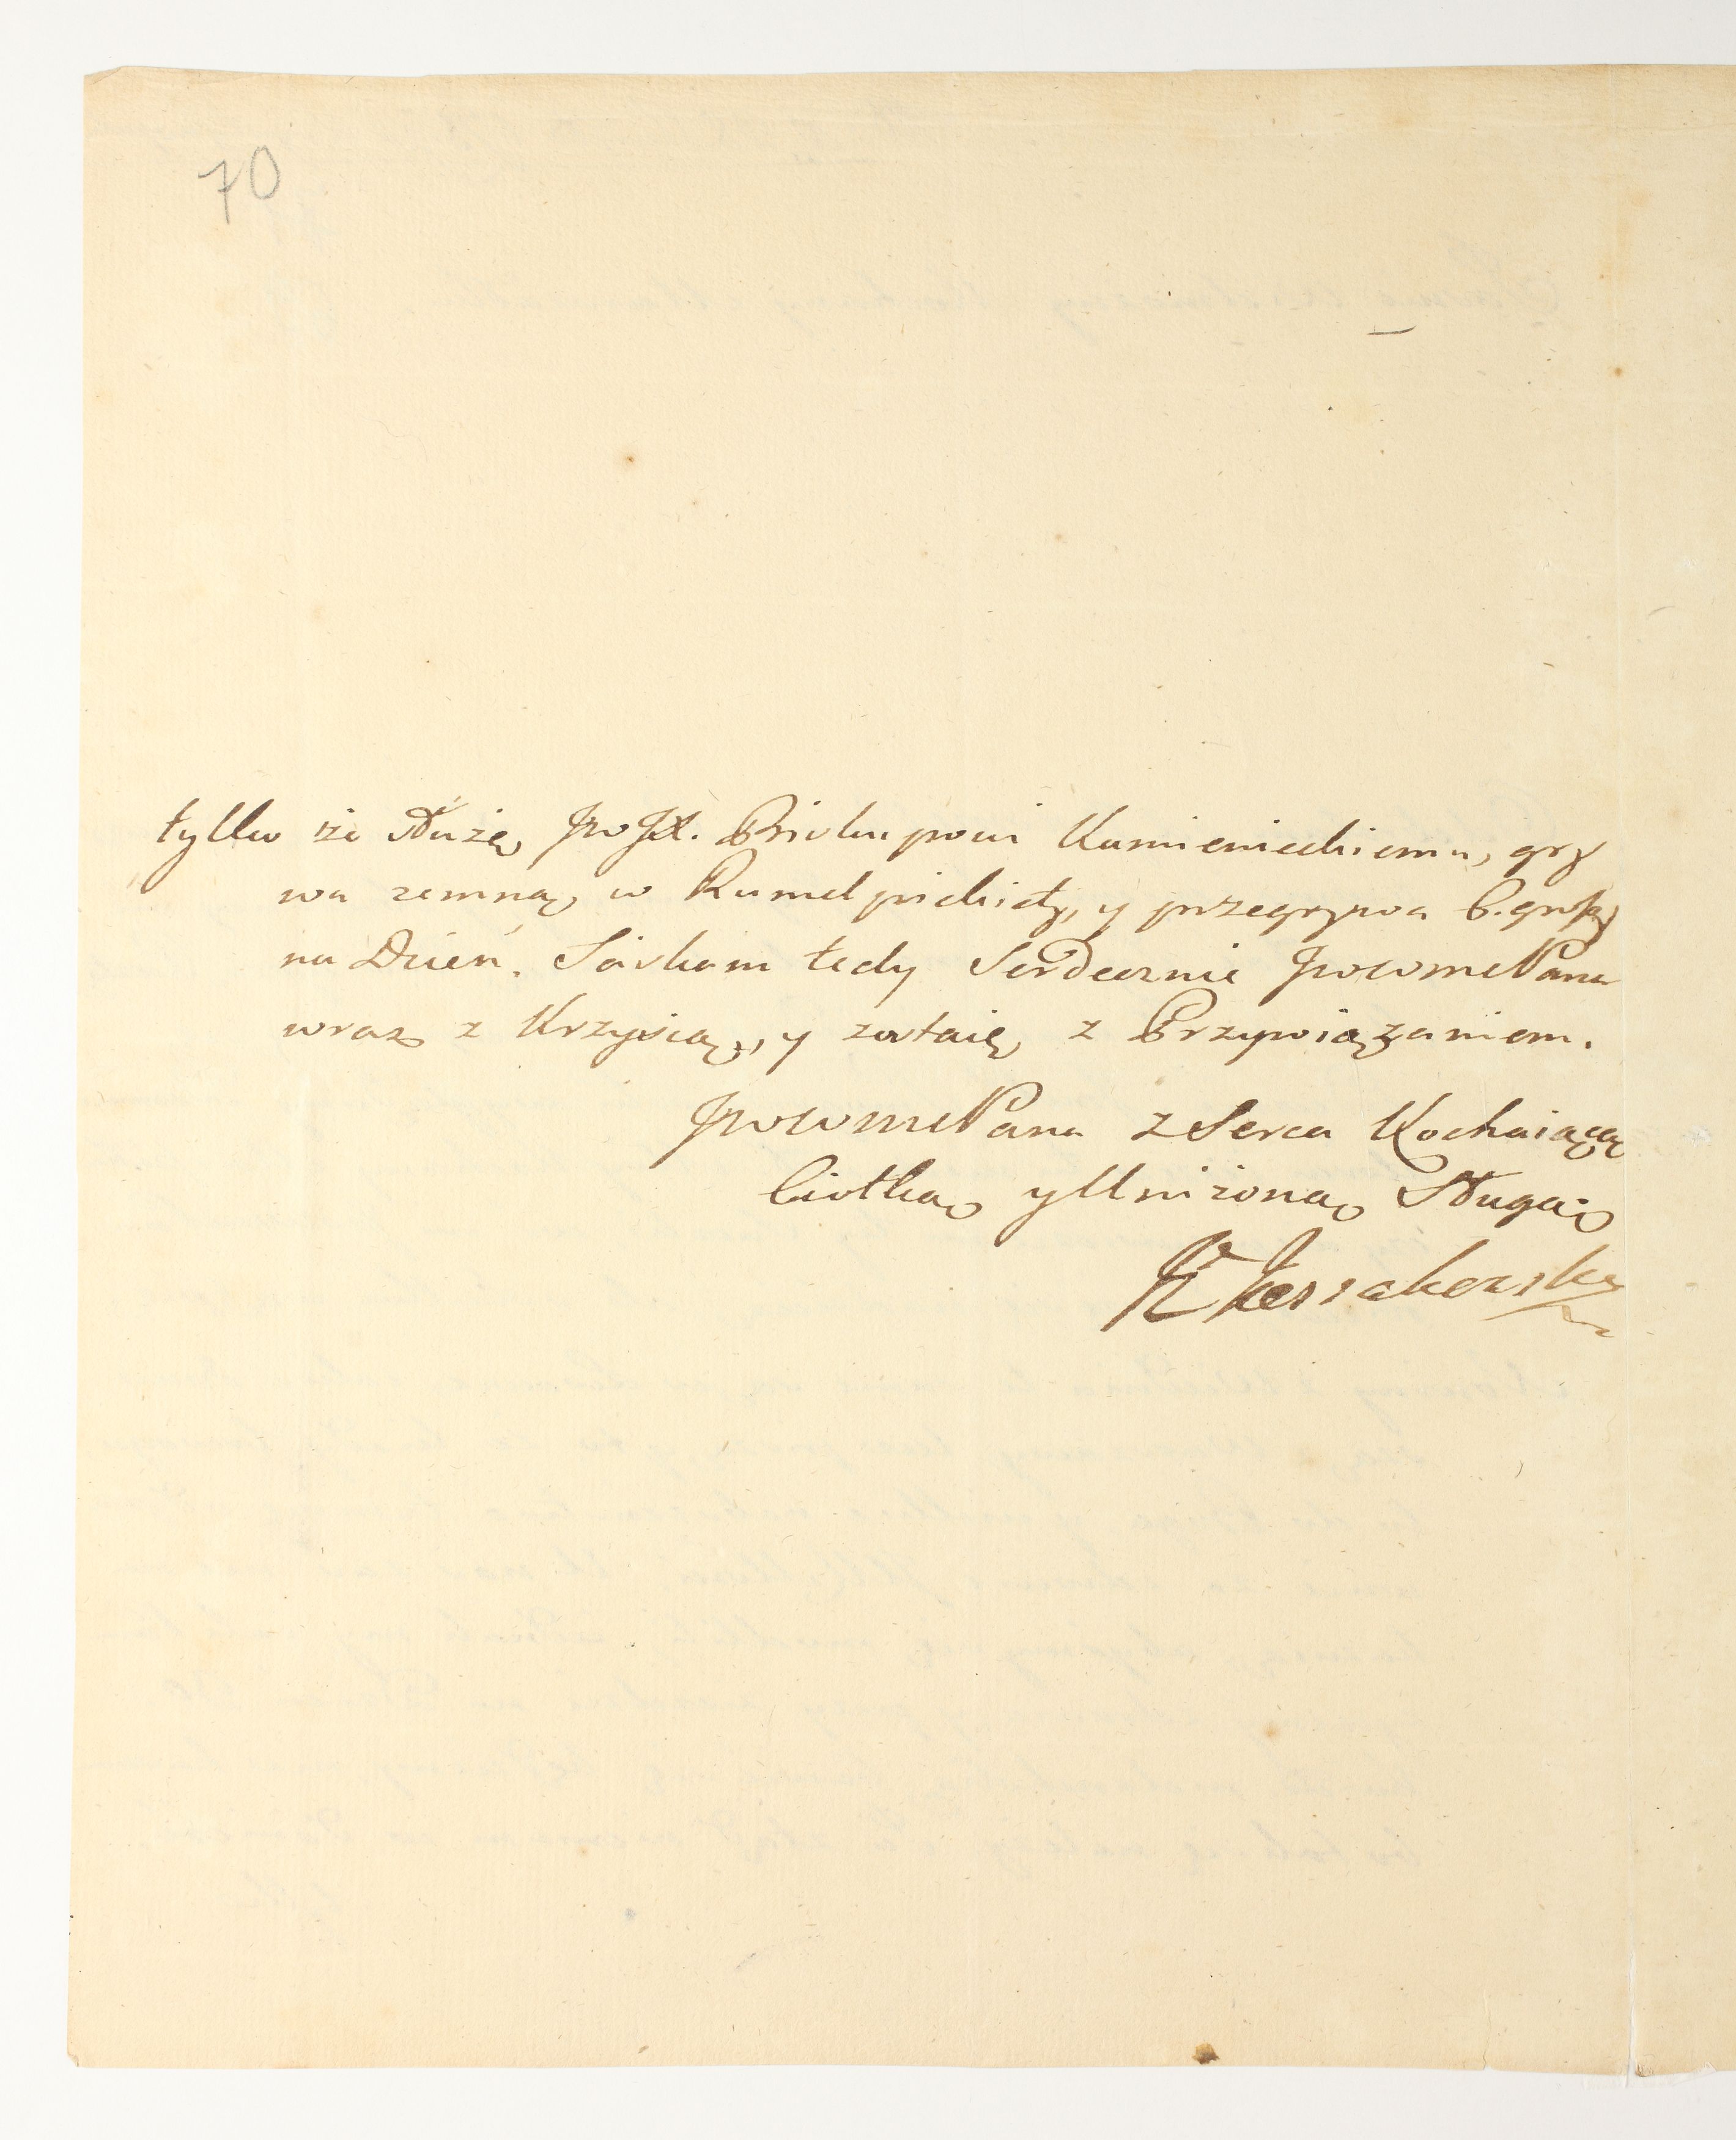 70
tylko że służę JWJX. Biskupowi Kamienieckiemu, gry
wa zemną w Rumel pikietę, y przegrywa 6. groszy
na Dzień. Sciskam tedy Serdecznie JWWMCPana
wraz z Krzysią, y zostaię z Przywiązaniem.
JWWMCPana z Serca Kochaiącą
Ciotką y Uniżoną Sługą
K Kossakowska